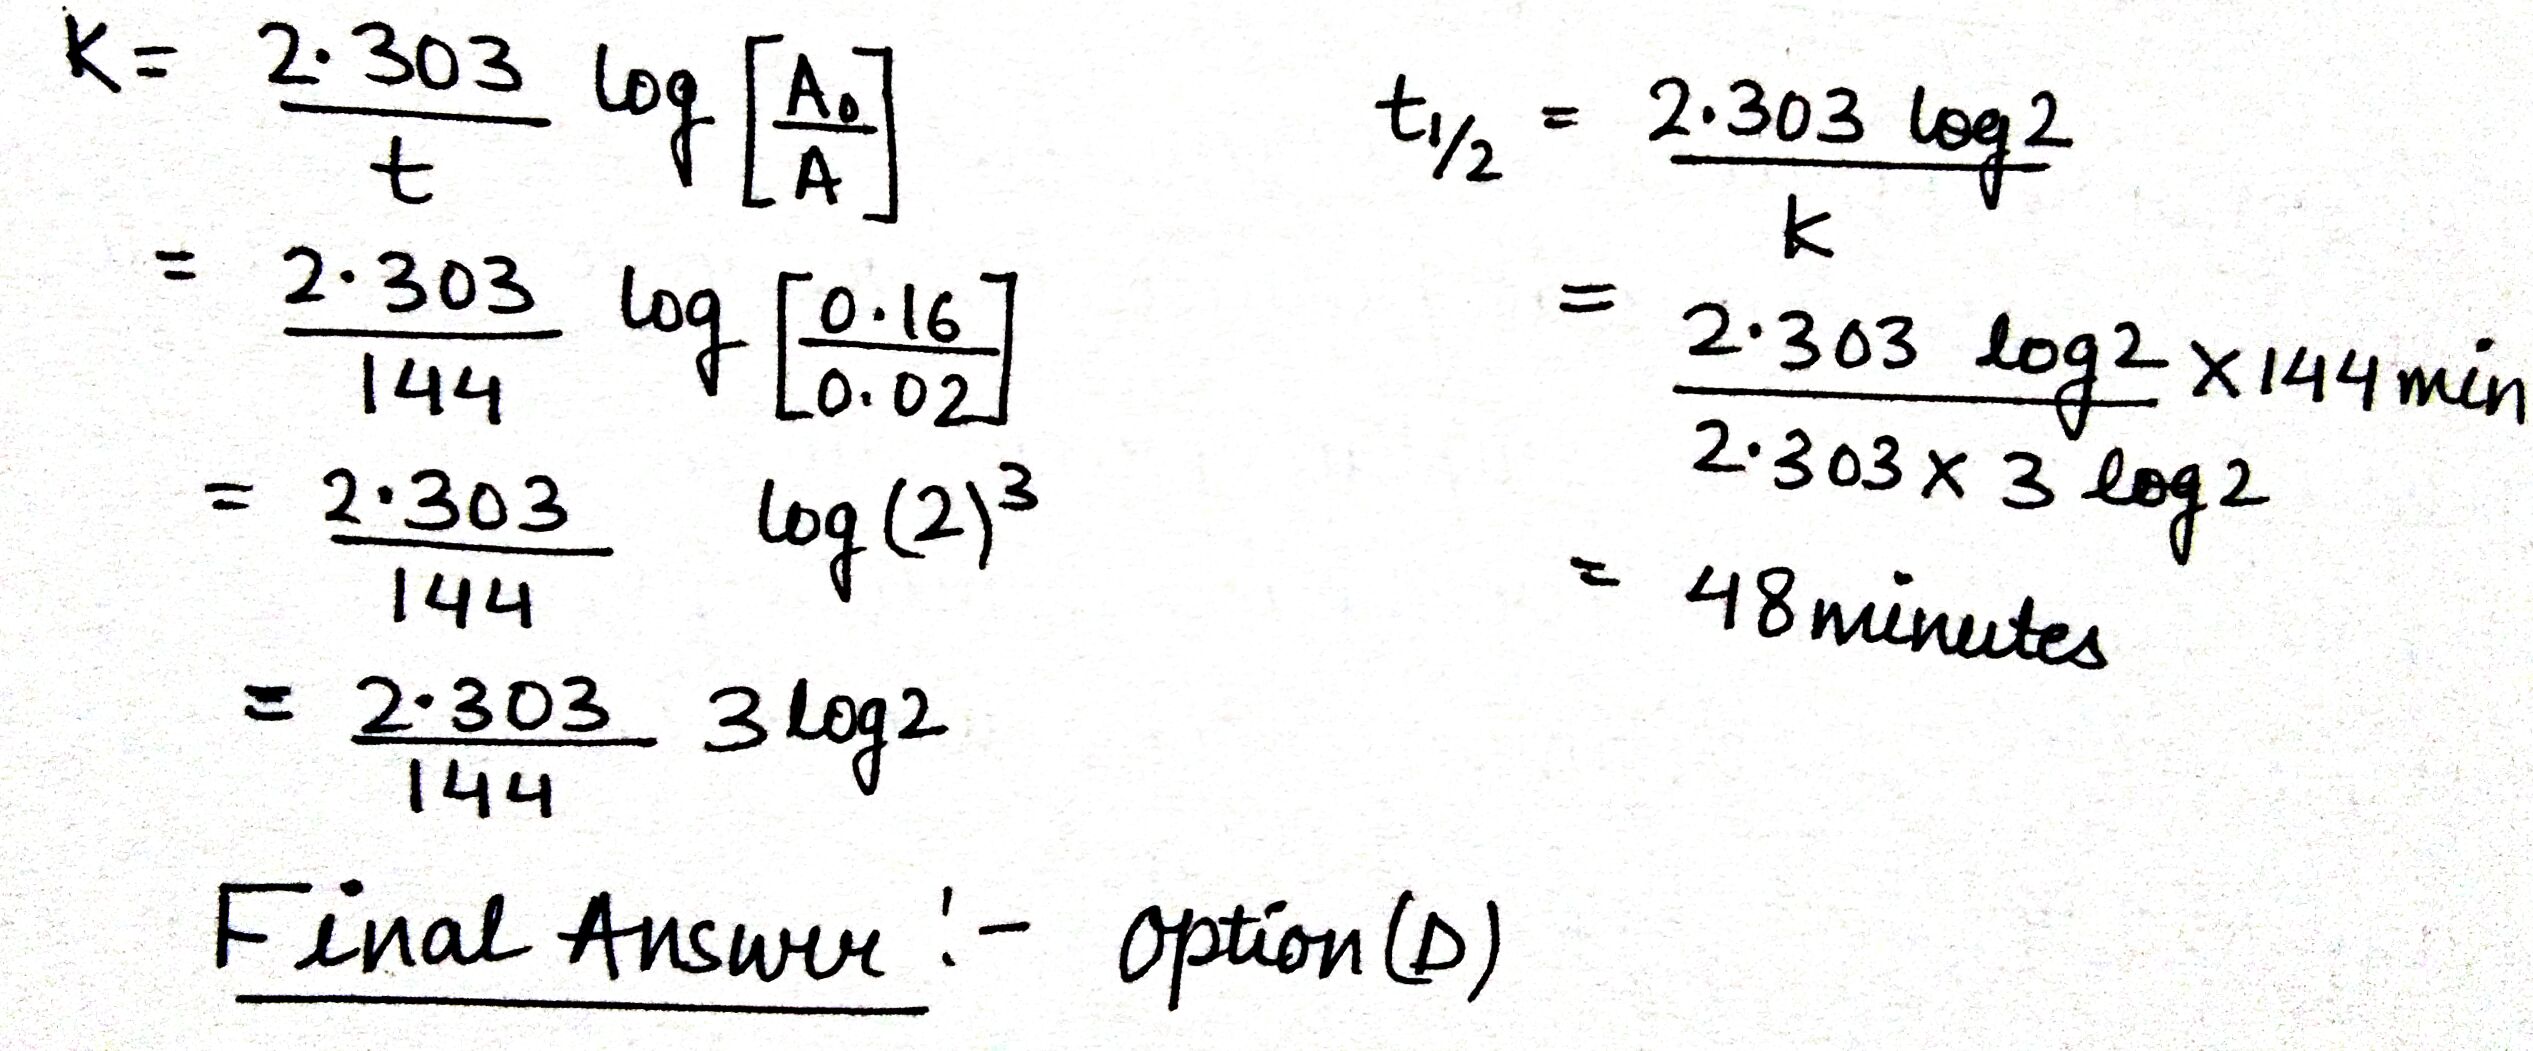 K = 2.303/t log [A₀/A]
= 2.303/144 log [0.16/0.02]
= 2.303/144 log (2)³
= 2.303/144 3 log 2
t₁/₂ = 2.303 log 2/k
= 2.303 log 2/2.303 × 3 log 2 × 144 min
= 48 minutes
Final Answer :- option (D)